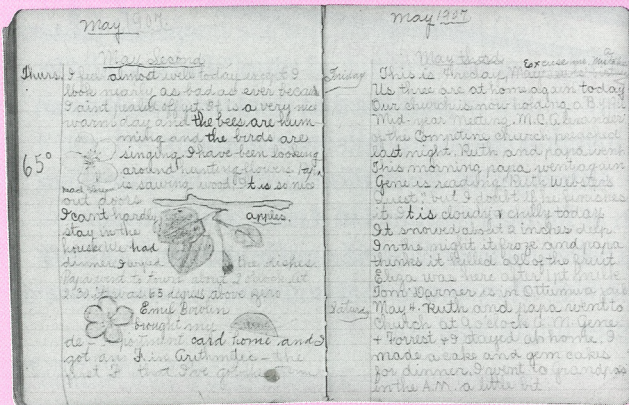 May 1907.
May Second
Thurs. I feel almost well today except I
look nearly as bad as ever because
I aint pealed off yet. It is a very nice
warm day and the bees are hum-
ming and the birds are
singing. I have been looking
around hunting flowers.
65°
is sawing wood. It is so nice
out doors
I cant hardly apples.
stay in the
house. We had
dinner I wiped the dishes.
Papa went to town about
it was 65 degrees above zero
Emil Brown
brought my
card home and I
got an in Arithmetic - the
first that I've gotten
May 1907
May third Excuse me mistake
Friday This is Friday,
Us three are at home again today
Our church is now holding a
Mid-year Meeting. M.C.
of the church preached
last night. Ruth and papa went
This morning papa went again
Gene is reading Ruth Webster's
Quest" but I doubt if he finishes
it. It is cloudy & chilly today
It snowed about 2 inches deep.
In the night it froze and papa
thinks it killed all of the fruit
Eliza was here after 1 pt milk
Tom is in Ottumwa
Saturday May 4. Ruth and papa went to
church at o'clock A.M. Gene
& Forrest & I stayed at home. I
made a cake and gem cakes
for dinner. I went to Grandpa's
in the A.M. a little bit